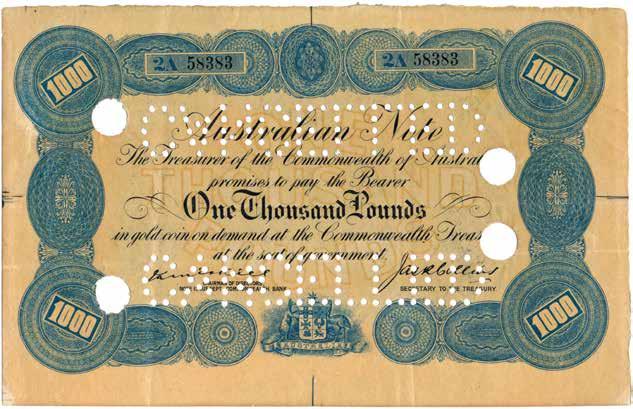 1000 2A 58383 2A 58383 1000
CANCELLED
Australian Note
The Treasurer of the Commonwealth of Austral
promises to pay the Bearer
One Thousand Pounds
in gold coin on demand at the Commonwealth Treas
at the seat of government.
CANCELLED
CHAIRMAN OF DIRECTORS
NOTE ISSUE DEPT. COMMONWEALTH BANK
Jas R Collins
SECRETARY TO THE TREASURY
1000 AUSTRALIA 1000